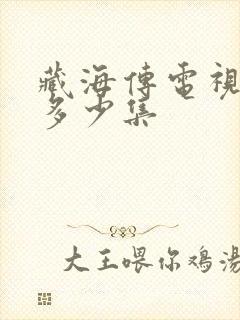 藏海傳電視
多少集
大王喂你鸡湯